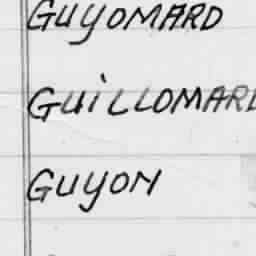 GUYOMARD
GUILLOMARD
GUYON